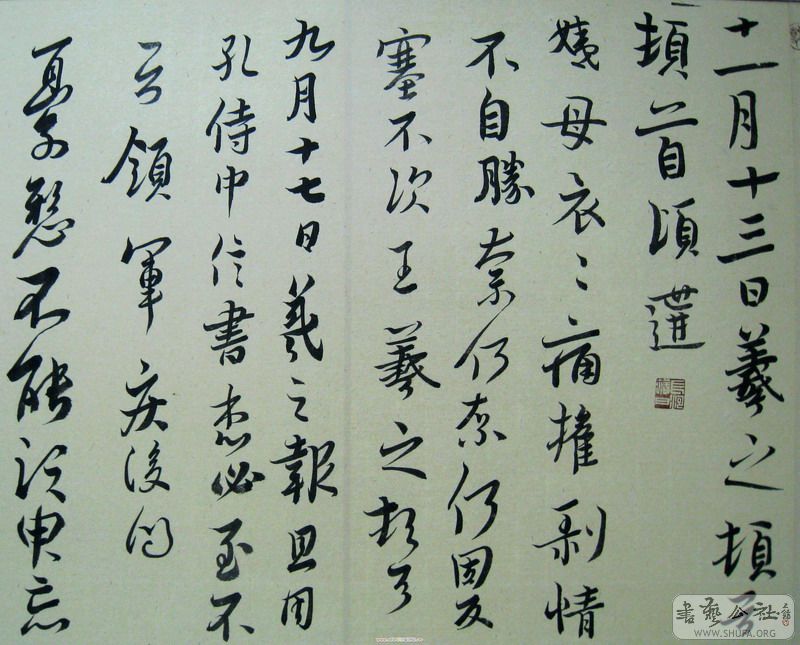 十一月十三日羲之頓首
頓首頃遘
姨母哀哀痛摧剝情
不自勝奈何奈何因反
塞不次王羲之頓首
九月十七日羲之報且因
孔侍中信書想必至不
知領軍疾後問
憂懸不能須臾忘
書藝公社
WWW.SHUFA.ORG